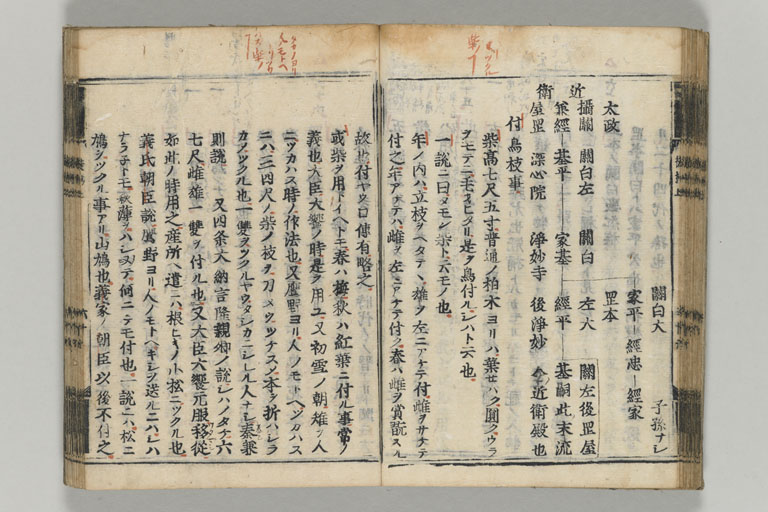 關白大
家平―經忠―經家 子孫ナシ
近衛
太政 罡本
攝關 關白左 關白 左大 關左後罡屋
兼經―基平―家基―經平―基嗣此末流
屋罡 深心院 淨妙寺 後淨妙 今近衛殿也
付鳥枝事
柴高七尺五寸普通ノ柏木ヨリハ葉せハク圓クウラ
ヲモテニモヲヒタリ是ヲ鳥付ルシハト云也
一說ニ曰タモン柴ト云モノ也
年ノ内ハ立枝ヲヘタテヽ雄ヲ左ニアケテ付雌ヲサケテ
付之年アケテハ雌ヲ左ニアケテ付ク春ハ雌ヲ賞翫スル
故也付ヤウ口傳有略之
或柴ヲ用トイヘトモ春ハ梅秋ハ紅葉ニ付ル事常ノ
義也大臣大饗ノ時是ヲ用ユ又初雪ノ朝雉ヲ人
ニツカハス時ノ作法也又鷹野ヨリ人ノモトヘツカハス
ニハ三四尺ノ柴ノ枝ヲ刀メツケナスシ本ヲ折ハシラ
カメツクル也一雙ヲツクルヤウタシカニシレル人ナシ秦兼
則說 又四条大納言隆親卿ノ說シハノタケ六
七尺雌雄一雙ヲ付ル也又大臣大饗元服移從
如此ノ時用之産所ヘ遣ニハ根ヒキノ小松ニツクル也
義氏朝臣說鷹野ヨリ人ノモトヘキシヲ送ルニハシハ
ナラ子トモ萩薄ヲハシメテ何ニテモ付也一說ニハ松ニ
鳩ヲツクル事アリ山鳩也義家ノ朝臣以後不付之